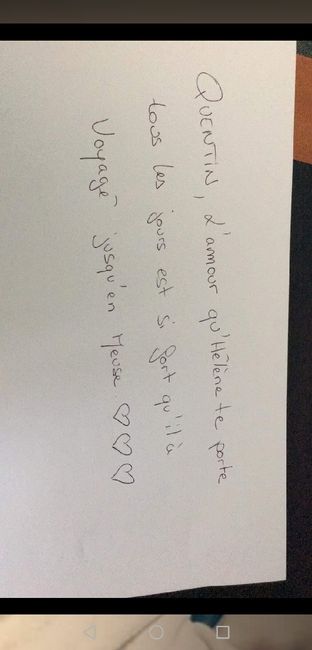 QUENTIN, L'amour qu'Hélène te porte
tous les jours est si fort qu'il à
Voyagé jusqu'en Meuse ♡♡♡